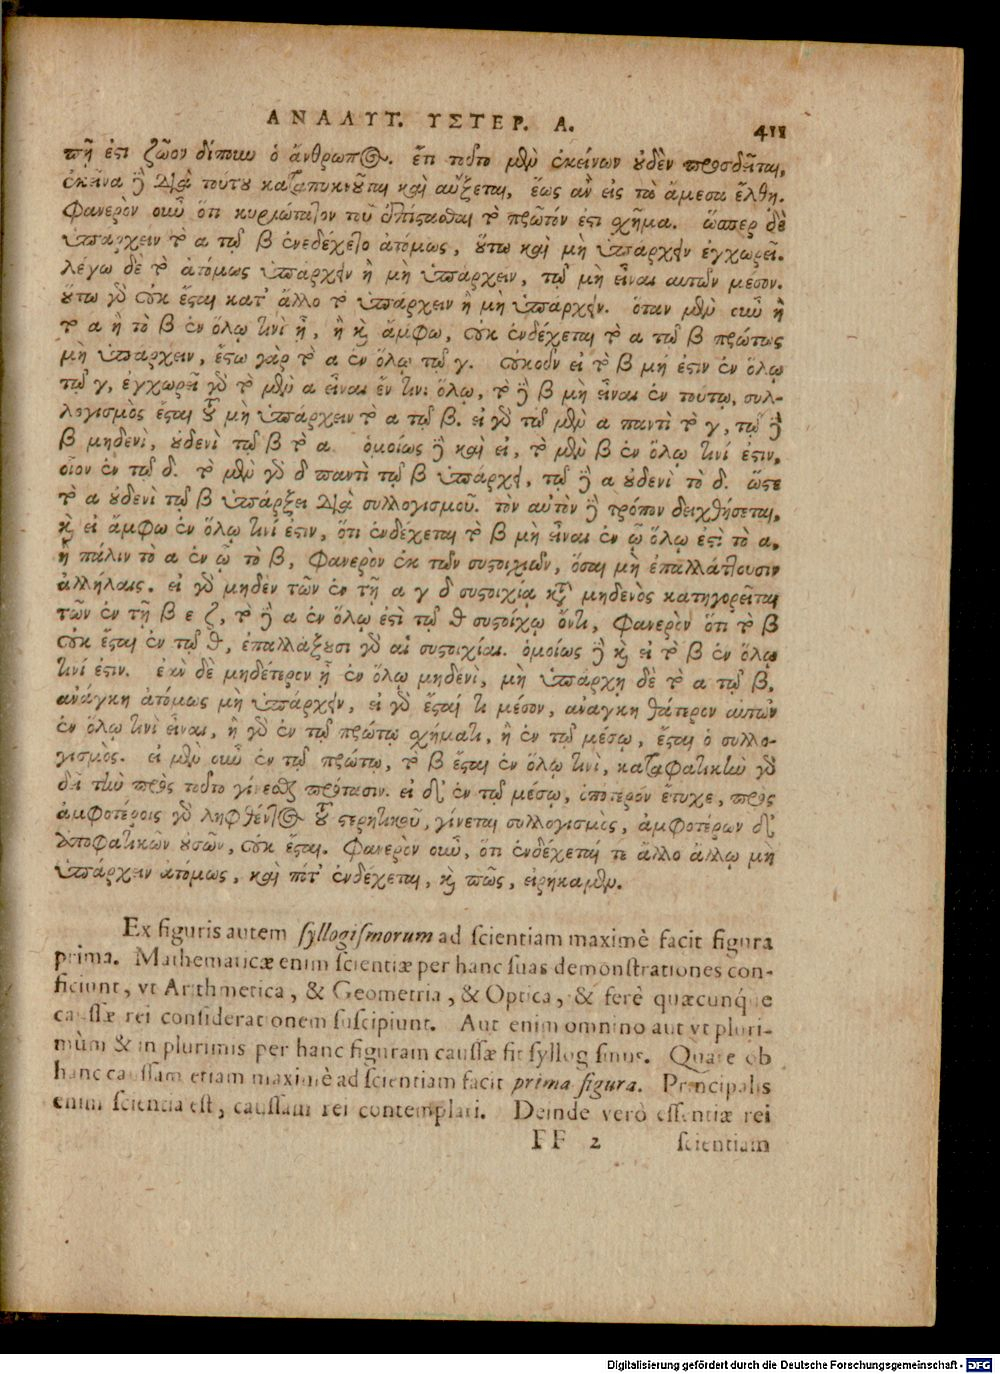 ΑΝΑΛΥΤ. ΥΣΤΕΡ. Α. 411
πῇ ἐστι ζῶον δίπουν ὁ ἄνθρωπος. ἔτι τοῦτο μὲν ἐκείνων οὐδὲν προσδεῖται,
ἐκεῖνα δὲ διὰ τούτου καταπυκνοῦται καὶ αὔξεται, ἕως ἂν εἰς τὰ ἄμεσα ἔλθῃ.
Φανερὸν οὖν ὅτι κυριώτατον τοῦ ἐπίστασθαι τὸ πρῶτόν ἐστι σχῆμα. ὥσπερ δὲ
ὑπάρχειν τὸ α τῷ β ἐνεδέχετο ἀτόμως, οὕτω καὶ μὴ ὑπάρχειν ἐγχωρεῖ.
λέγω δὲ τὸ ἀτόμως ὑπάρχειν ἢ μὴ ὑπάρχειν, τῷ μὴ εἶναι αυτῶν μέσον.
οὕτω γὰρ οὐκ ἔσται κατ' ἄλλο τὸ ὑπάρχειν ἢ μὴ ὑπάρχειν. ὅταν μὲν οὖν ἢ
τὸ α ἢ τὸ β ἐν ὅλῳ τινὶ ᾖ, ἢ καὶ ἄμφω, οὐκ ἐνδέχεται τὸ α τῷ β πρώτως
μὴ ὑπάρχειν, ἔστω γὰρ τὸ α ἐν ὅλῳ τῷ γ. οὐκοῦν εἰ τὸ β μή ἐστιν ἐν ὅλῳ
τῷ γ, ἐγχωρεῖ γὰρ τὸ μὲν α εἶναι ἔν τινι ὅλῳ, τὸ δὲ β μὴ εἶναι ἐν τούτῳ, συλ-
λογισμὸς ἔσται τοῦ μὴ ὑπάρχειν τὸ α τῷ β. εἰ γὰρ τῷ μὲν α παντὶ τὸ γ, τῷ δὲ
β μηδενὶ, οὐδενὶ τῷ β τὸ α. ὁμοίως δὲ καὶ εἰ, τὸ μὲν β ἐν ὅλῳ τινί ἐστιν,
οἷον ἐν τῷ δ. τὸ μὲν γὰρ δ παντὶ τῷ β ὑπάρχει, τῷ δὲ α οὐδενὶ τὸ δ. ὥστε
τὸ α οὐδενὶ τῷ β ὑπάρξει διὰ συλλογισμοῦ. τὸν αὐτὸν δὲ τρόπον δειχθήσεται,
καὶ εἰ ἄμφω ἐν ὅλῳ τινί ἐστιν, ὅτι ἐνδέχεται τὸ β μὴ εἶναι ἐν ᾧ ὅλῳ ἐστὶ τὸ α,
ἢ πάλιν τὸ α ἐν ᾧ τὸ β, Φανερὸν ἐκ τῶν συστοιχιῶν, ὅσαι μὴ ἐπαλλάττουσιν
ἀλλήλαις. εἰ γὰρ μηδὲν τῶν ἐν τῇ α γ δ συστοιχίᾳ κατὰ μηδενὸς κατηγορεῖται
τῶν ἐν τῇ β ε ζ, τὸ δὲ α ἐν ὅλῳ ἐστὶ τῷ θ συστοίχῳ ὄντι, Φανερὸν ὅτι τὸ β
οὐκ ἔσται ἐν τῷ θ, ἐπαλλάξουσι γὰρ αἱ συστοιχίαι. ὁμοίως δὲ καὶ εἰ τὸ β ἐν ὅλῳ
τινί ἐστιν. ἐὰν δὲ μηδέτερον ᾖ ἐν ὅλῳ μηδενὶ, μὴ ὑπάρχῃ δὲ τὸ α τῷ β,
ανάγκη ἀτόμως μὴ ὑπάρχειν, εἰ γὰρ ἔσται τι μέσον, ανάγκη θάτερον αυτῶν
ἐν ὅλῳ τινὶ εἶναι, ἢ γὰρ ἐν τῷ πρώτῳ σχήματι, ἢ ἐν τῷ μέσῳ, ἔσται ὁ συλλο-
γισμὸς. εἰ μὲν οὖν ἐν τῷ πρώτῳ, τὸ β ἔσται ἐν ὅλῳ τινὶ, καταφατικὴν γὰρ
δεῖ τὴν πρὸς τοῦτο γίνεσθαι πρότασιν. εἰ δὲ ἐν τῷ μέσῳ, ὁπότερόν ἔτυχε, πρὸς
ἀμφοτέροις γὰρ ληφθέντος τοῦ στερητικοῦ, γίνεται συλλογισμὸς, ἀμφοτέρων δὲ
ἀποφατικῶν οὐσῶν, οὐκ ἔσται. Φανερὸν οὖν, ὅτι ἐνδέχεταί τε ἄλλο ἄλλῳ μὴ
ὑπάρχειν ἀτόμως, καὶ πότ' ἐνδέχεται, καὶ πῶς, εἰρήκαμεν.
Ex figuris autem syllogismorum ad scientiam maximè facit figura
prima. Mathematicæ enim scientiæ per hanc suas demonstrationes con-
ficiunt, vt Arithmetica, & Geometria, & Optica, & ferè quæcunque
caussæ rei considerationem suscipiunt. Aut enim omnino aut vt pluri-
mùm & in plurimis per hanc figuram caussæ fit syllogismus. Quare ob
hanc caussam etiam maximè ad scientiam facit prima figura. Principalis
enim scientia est, caussam rei contemplari. Deinde verò essentiæ rei
FF 2 scientiam
Digitalisierung gefördert durch die Deutsche Forschungsgemeinschaft - DFG